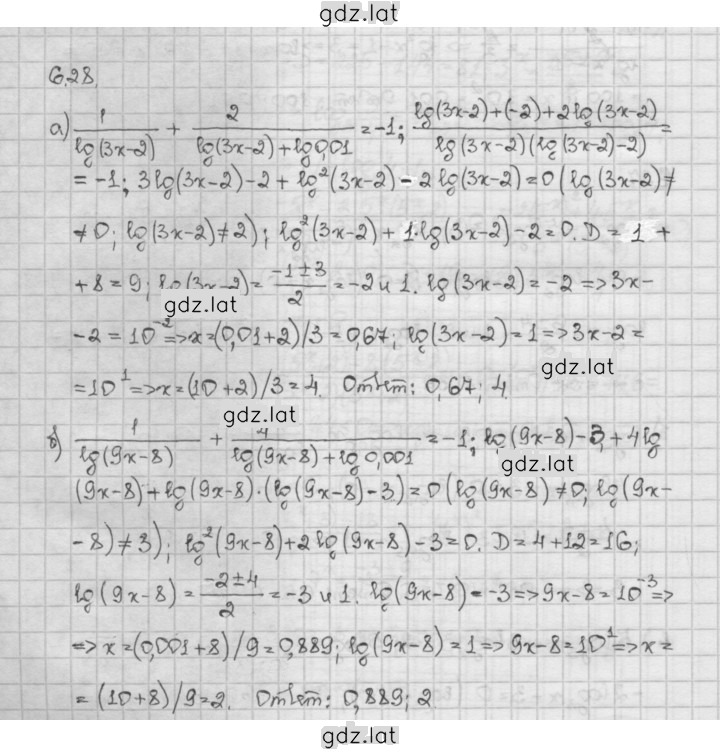 gdz.lat
6.28.
а) 1/lg(3x-2) + 2/(lg(3x-2)+lg0,01) = -1; (lg(3x-2)+(-2)+2lg(3x-2))/(lg(3x-2)(lg(3x-2)-2)) =
= -1; 3lg(3x-2)-2+lg²(3x-2)-2lg(3x-2)=0(lg(3x-2)≠
≠0; lg(3x-2)≠2); lg²(3x-2)+1·lg(3x-2)-2=0. D = 1 +
+8=9; lg(3x-2)= (-1±3)/2 = -2 и 1. lg(3x-2)=-2 => 3x-
gdz.lat
-2=10⁻²=>x=(0,01+2)/3=0,67; lg(3x-2)=1=>3x-2=
gdz.lat
=10¹=>x=(10+2)/3=4. Ответ: 0,67; 4.
gdz.lat
б) 1/lg(9x-8) + 4/(lg(9x-8)+lg0,001) = -1; lg(9x-8)-3+4lg
gdz.lat
(9x-8)+lg(9x-8)·(lg(9x-8)-3)=0(lg(9x-8)≠0; lg(9x-
-8)≠3); lg²(9x-8)+2lg(9x-8)-3=0. D=4+12=16;
lg(9x-8)= (-2±4)/2 = -3 и 1. lg(9x-8)=-3=>9x-8=10⁻³=>
=>x=(0,001+8)/9=0,889; lg(9x-8)=1=>9x-8=10¹=>x=
=(10+8)/9=2. Ответ: 0,889; 2.
gdz.lat